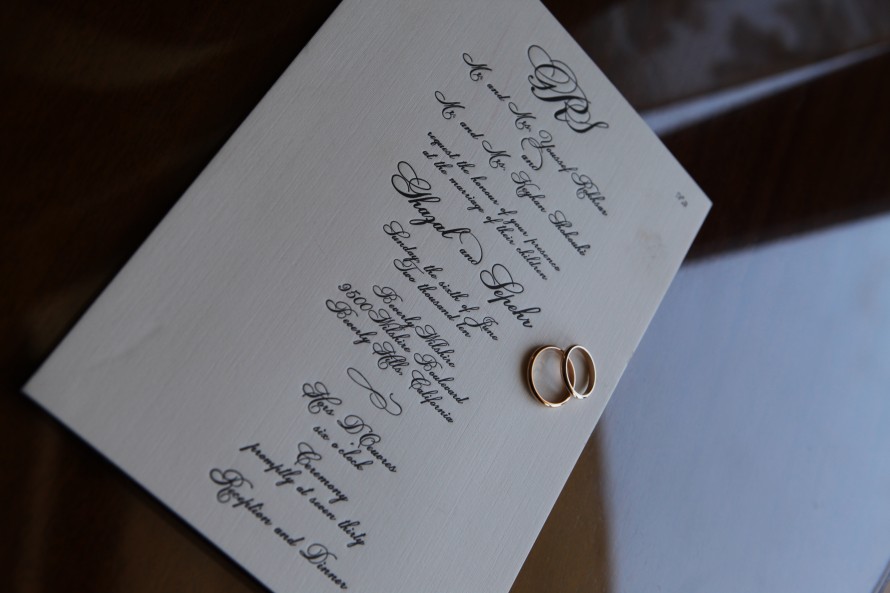 GRS
Mr. and Mrs. Youssef
and
Mr. and Mrs. Keyhan Shakouhi
request the honour of your presence
at the marriage of their children
Ghazal and Sepehr
Sunday, the sixth of June
Two thousand ten
Beverly Wilshire
9500 Wilshire Boulevard
Beverly Hills, California
Hors D'Oeuvres
six o'clock
Ceremony
promptly at seven thirty
Reception and Dinner